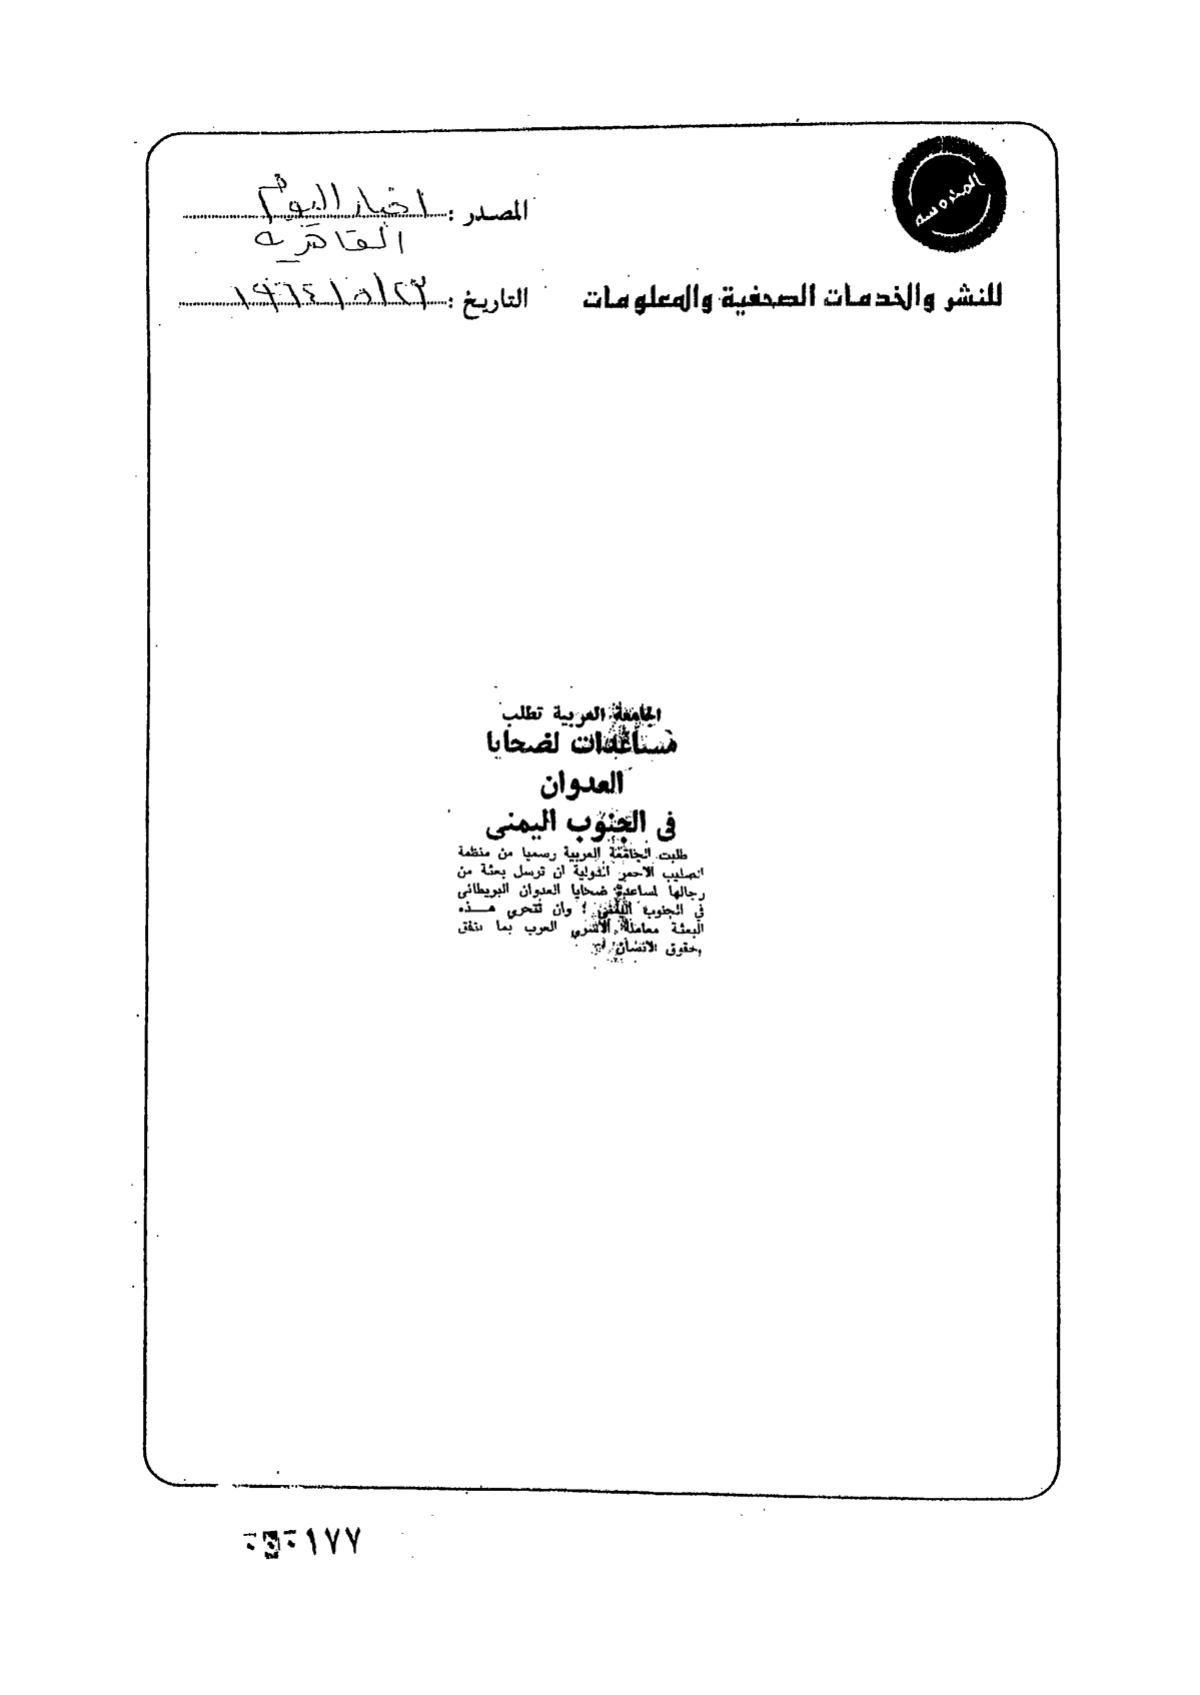 المحروسه
المصدر : اخبار اليوم
القاهريه
للنشر والخدمات الصحفية والمعلومات
التاريخ : ١٩٦٤/٥/٢٣
الجامعة العربية تطلب
مساعدات لضحايا
العدوان
فى الجنوب اليمنى
طلبت الجامعة العربية رسميا من منظمة
الصليب الاحمر الدولية ان ترسل بعثة من
رجالها لمساعدة ضحايا العدوان البريطانى
في الجنوب اليمني ؛ وان تتحرى هذه
البعثة معاملة الاسرى العرب بما يتفق
وحقوق الانسان
١٧٧